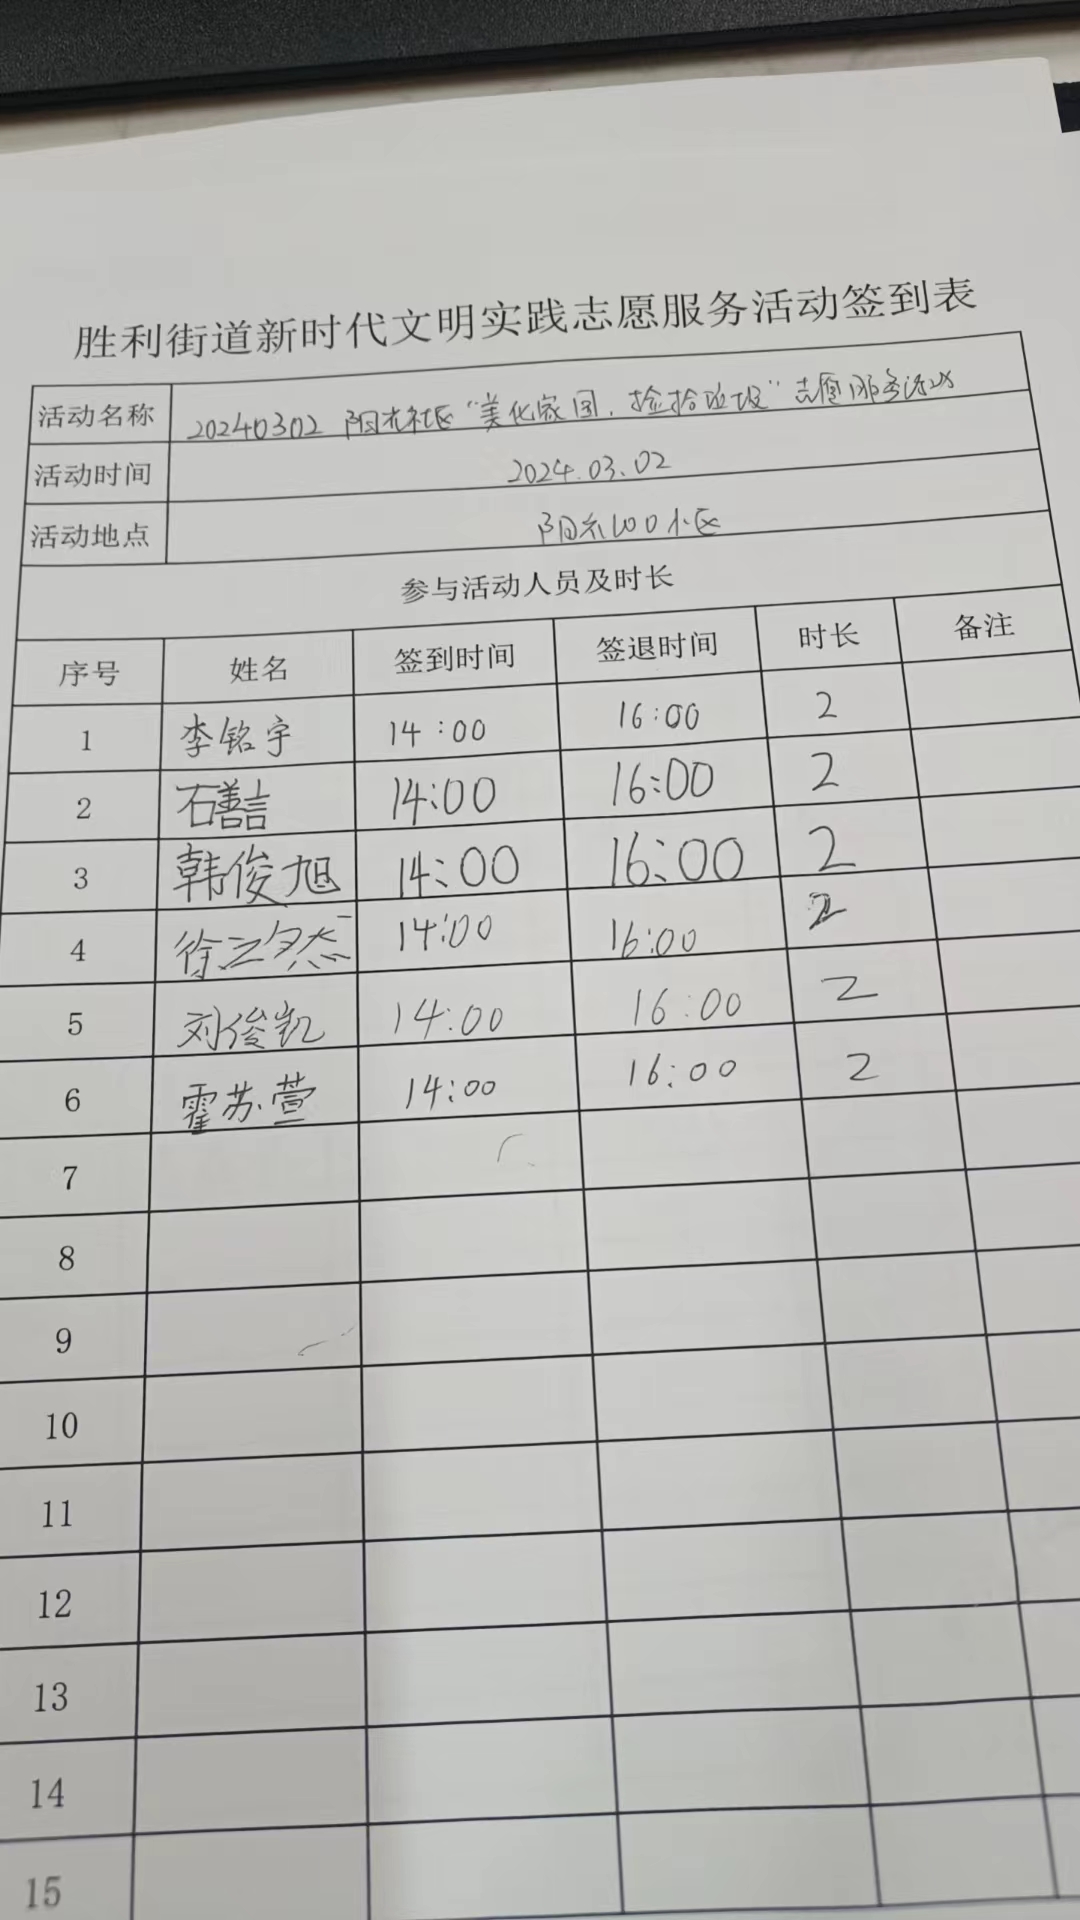 胜利街道新时代文明实践志愿服务活动签到表
活动名称 20240302 阳光社区“美化家园，捡拾垃圾”志愿服务活动
活动时间 2024.03.02
活动地点 阳光100小区
参与活动人员及时长
序号 姓名 签到时间 签退时间 时长 备注
1 李铭宇 14:00 16:00 2
2 石善言 14:00 16:00 2
3 韩俊旭 14:00 16:00 2
4 14:00 16:00 2
5 刘俊凯 14:00 16:00 2
6 霍苏萱 14:00 16:00 2
7
8
9
10
11
12
13
14
15